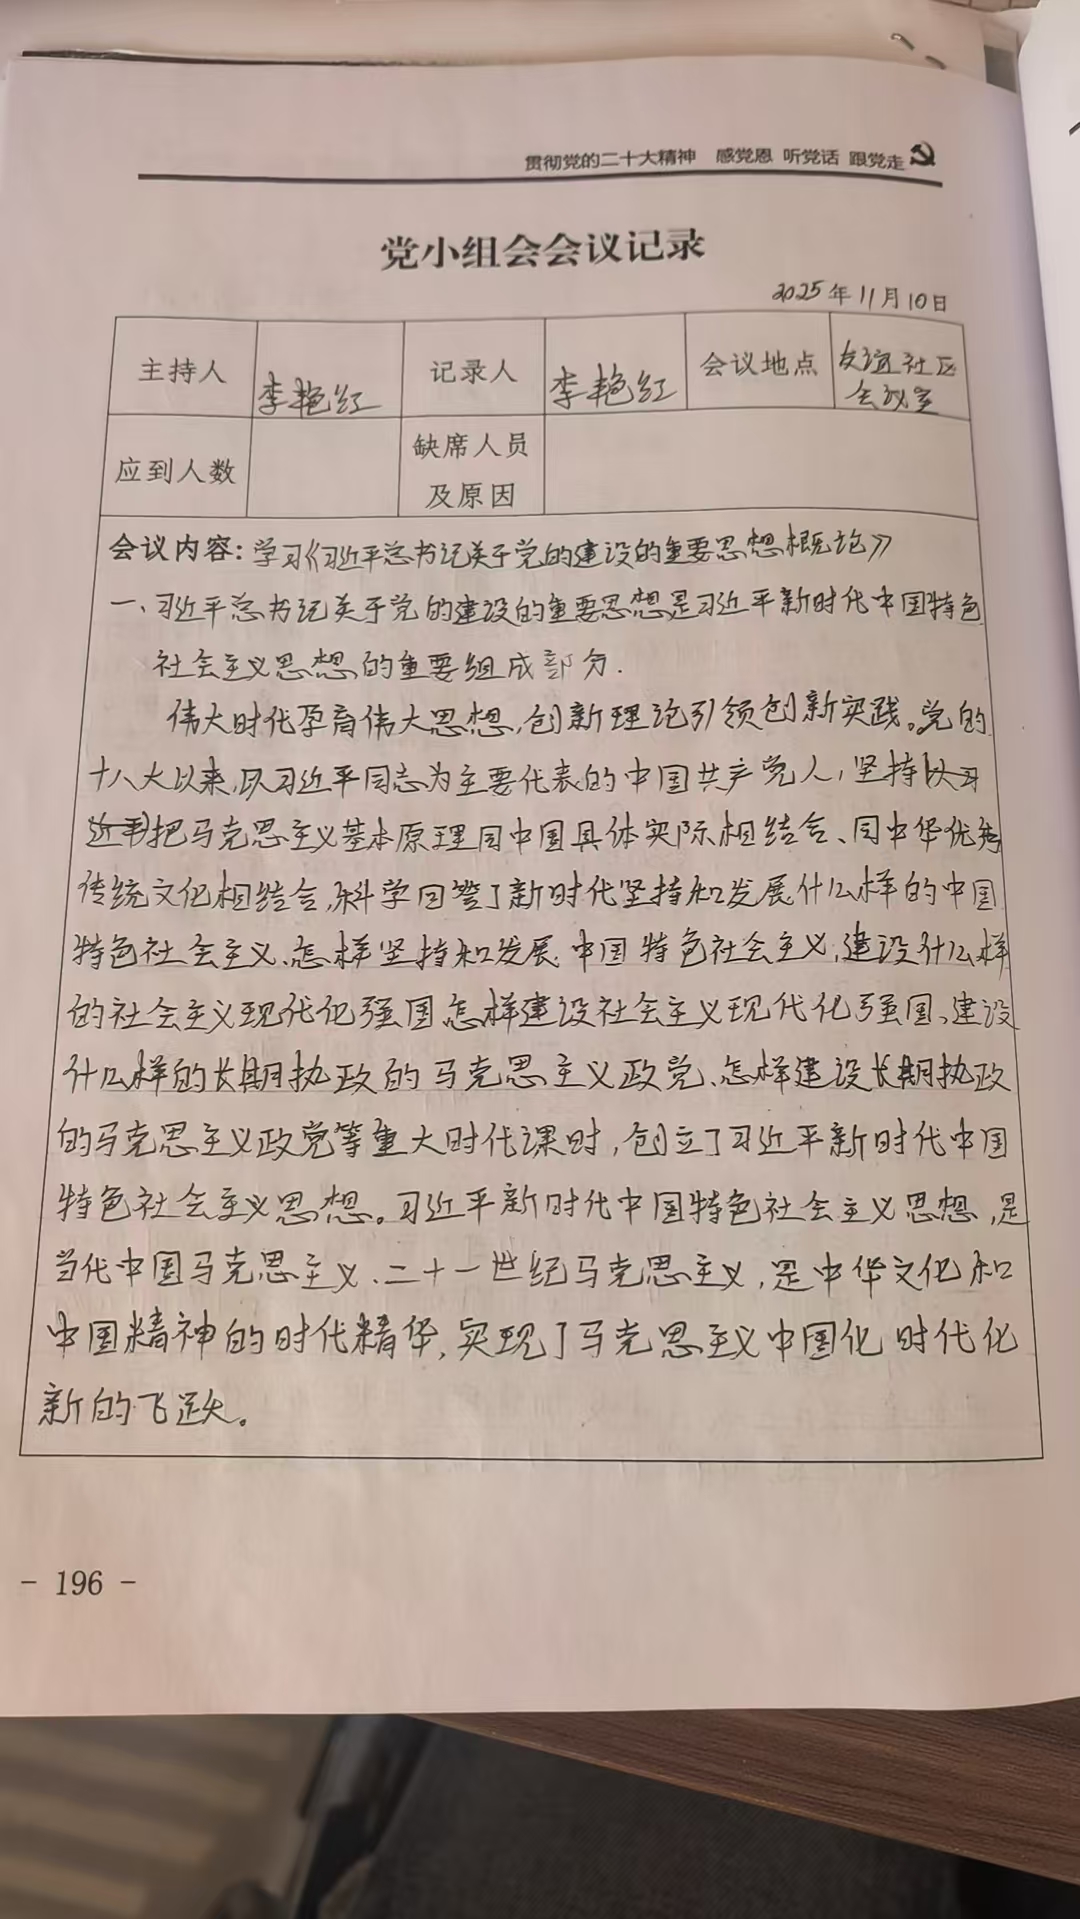 贯彻党的二十大精神 感党恩 听党话 跟党走
党小组会会议记录
2025年11月10日
主持人 李艳红 记录人 李艳红 会议地点 友谊社区会议室
应到人数 缺席人员及原因
会议内容：学习《习近平总书记关于党的建设的重要思想概论》
一、习近平总书记关于党的建设的重要思想是习近平新时代中国特色
社会主义思想的重要组成部分.
伟大时代孕育伟大思想,创新理论引领创新实践。党的
十八大以来,以习近平同志为主要代表的中国共产党人,坚持以习
近平把马克思主义基本原理同中国具体实际相结合、同中华优秀
传统文化相结合,科学回答了新时代坚持和发展什么样的中国
特色社会主义、怎样坚持和发展中国特色社会主义,建设什么样
的社会主义现代化强国怎样建设社会主义现代化强国、建设
什么样的长期执政的马克思主义政党、怎样建设长期执政
的马克思主义政党等重大时代课时,创立了习近平新时代中国
特色社会主义思想。习近平新时代中国特色社会主义思想,是
当代中国马克思主义、二十一世纪马克思主义,是中华文化和
中国精神的时代精华,实现了马克思主义中国化时代化
新的飞跃。
- 196 -